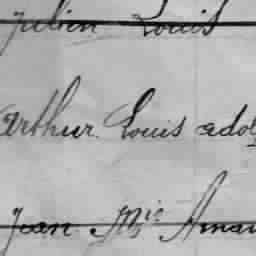 Julien Louis
Arthur Louis adol
Jean Mie Aman